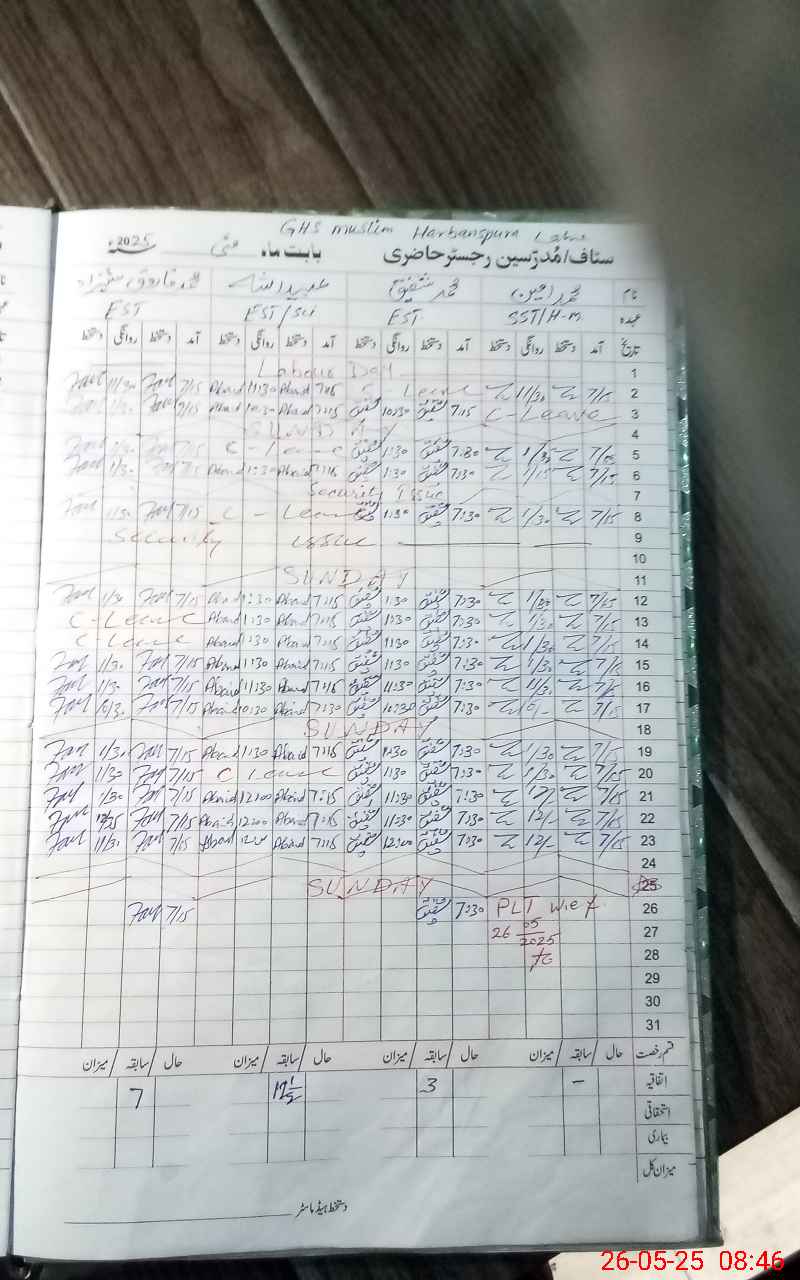 GHS muslim Harbanspura Lahore
سٹاف/مُدرّسین رجسٹر حاضری بابت ماہ مئی 2025ء
نام محمد امین محمد شفیق عبید اللہ محمد فاروق شہزاد
عہدہ SST/H-m EST. EST/Sci EST
تاریخ آمد دستخط روانگی دستخط آمد دستخط روانگی دستخط آمد دستخط روانگی دستخط آمد دستخط روانگی دستخط
1 Labour Day
2 7/15 11/30 C - Leave 7:15 Abaid 11:30 Abaid 7/15 11/30
3 C-Leave 7:15 شفیق 10:30 شفیق 7:15 Abaid 10:30 Abaid 7/15
4 SUNDAY
5 7/15 1/30 7:30 شفیق 1:30 شفیق C - Leave 7/15 1/30
6 7/15 1/15 7:30 شفیق 1:30 شفیق 7:15 Abaid 1:30 Abaid 7/15 1/30
7 Security Issue
8 7/15 1/30 7:30 شفیق 1:30 شفیق C - Leave 7/15 1/30
9 Security issue
10
11 SUNDAY
12 7/15 1/30 7:30 شفیق 1:30 شفیق 7:15 Abaid 1:30 Abaid 7/15 1/30
13 7/15 1/30 7:30 شفیق 1:30 شفیق 7:15 Abaid 1:30 Abaid C-Leave
14 7/15 1/30 7:30 شفیق 1:30 شفیق 7:15 Abaid 1:30 Abaid C-Leave
15 7/15 1/30 7:30 شفیق 11:30 شفیق 7:15 Abaid 1:30 Abaid 7/15 1/30
16 7/15 11/30 7:30 شفیق 11:30 شفیق 7:15 Abaid 11:30 Abaid 7/15 1/30
17 7/15 7:30 شفیق 10:30 شفیق 7:30 Abaid 10:30 Abaid 7/15
18 SUNDAY
19 7/15 1/30 7:30 شفیق 1:30 شفیق 7:15 Abaid 1:30 Abaid 7/15 1/30
20 7/15 1/30 7:30 شفیق 1:30 شفیق C Leave 7/15 1/30
21 7/15 12/- 7:30 شفیق 11:30 شفیق 7:15 Abaid 12:00 Abaid 7/15 1/30
22 7/15 12/- 7:30 شفیق 11:30 شفیق 7:15 Abaid 12:00 Abaid 7/15
23 7/15 12/- 7:30 شفیق 12:00 شفیق 7:15 Abaid Abaid 7/15 11/30
24
25 SUNDAY
26 PLT w.e.f. 7:30 شفیق 7/15
27 26 05/2025
28
29
30
31
قسم رخصت حال / سابقہ / میزان حال / سابقہ / میزان حال / سابقہ / میزان حال / سابقہ / میزان
اتفاقیہ - 3 12 1/2 7
استحقاقی
بیماری
میزان کل
دستخط ہیڈ ماسٹر
26-05-25 08:46